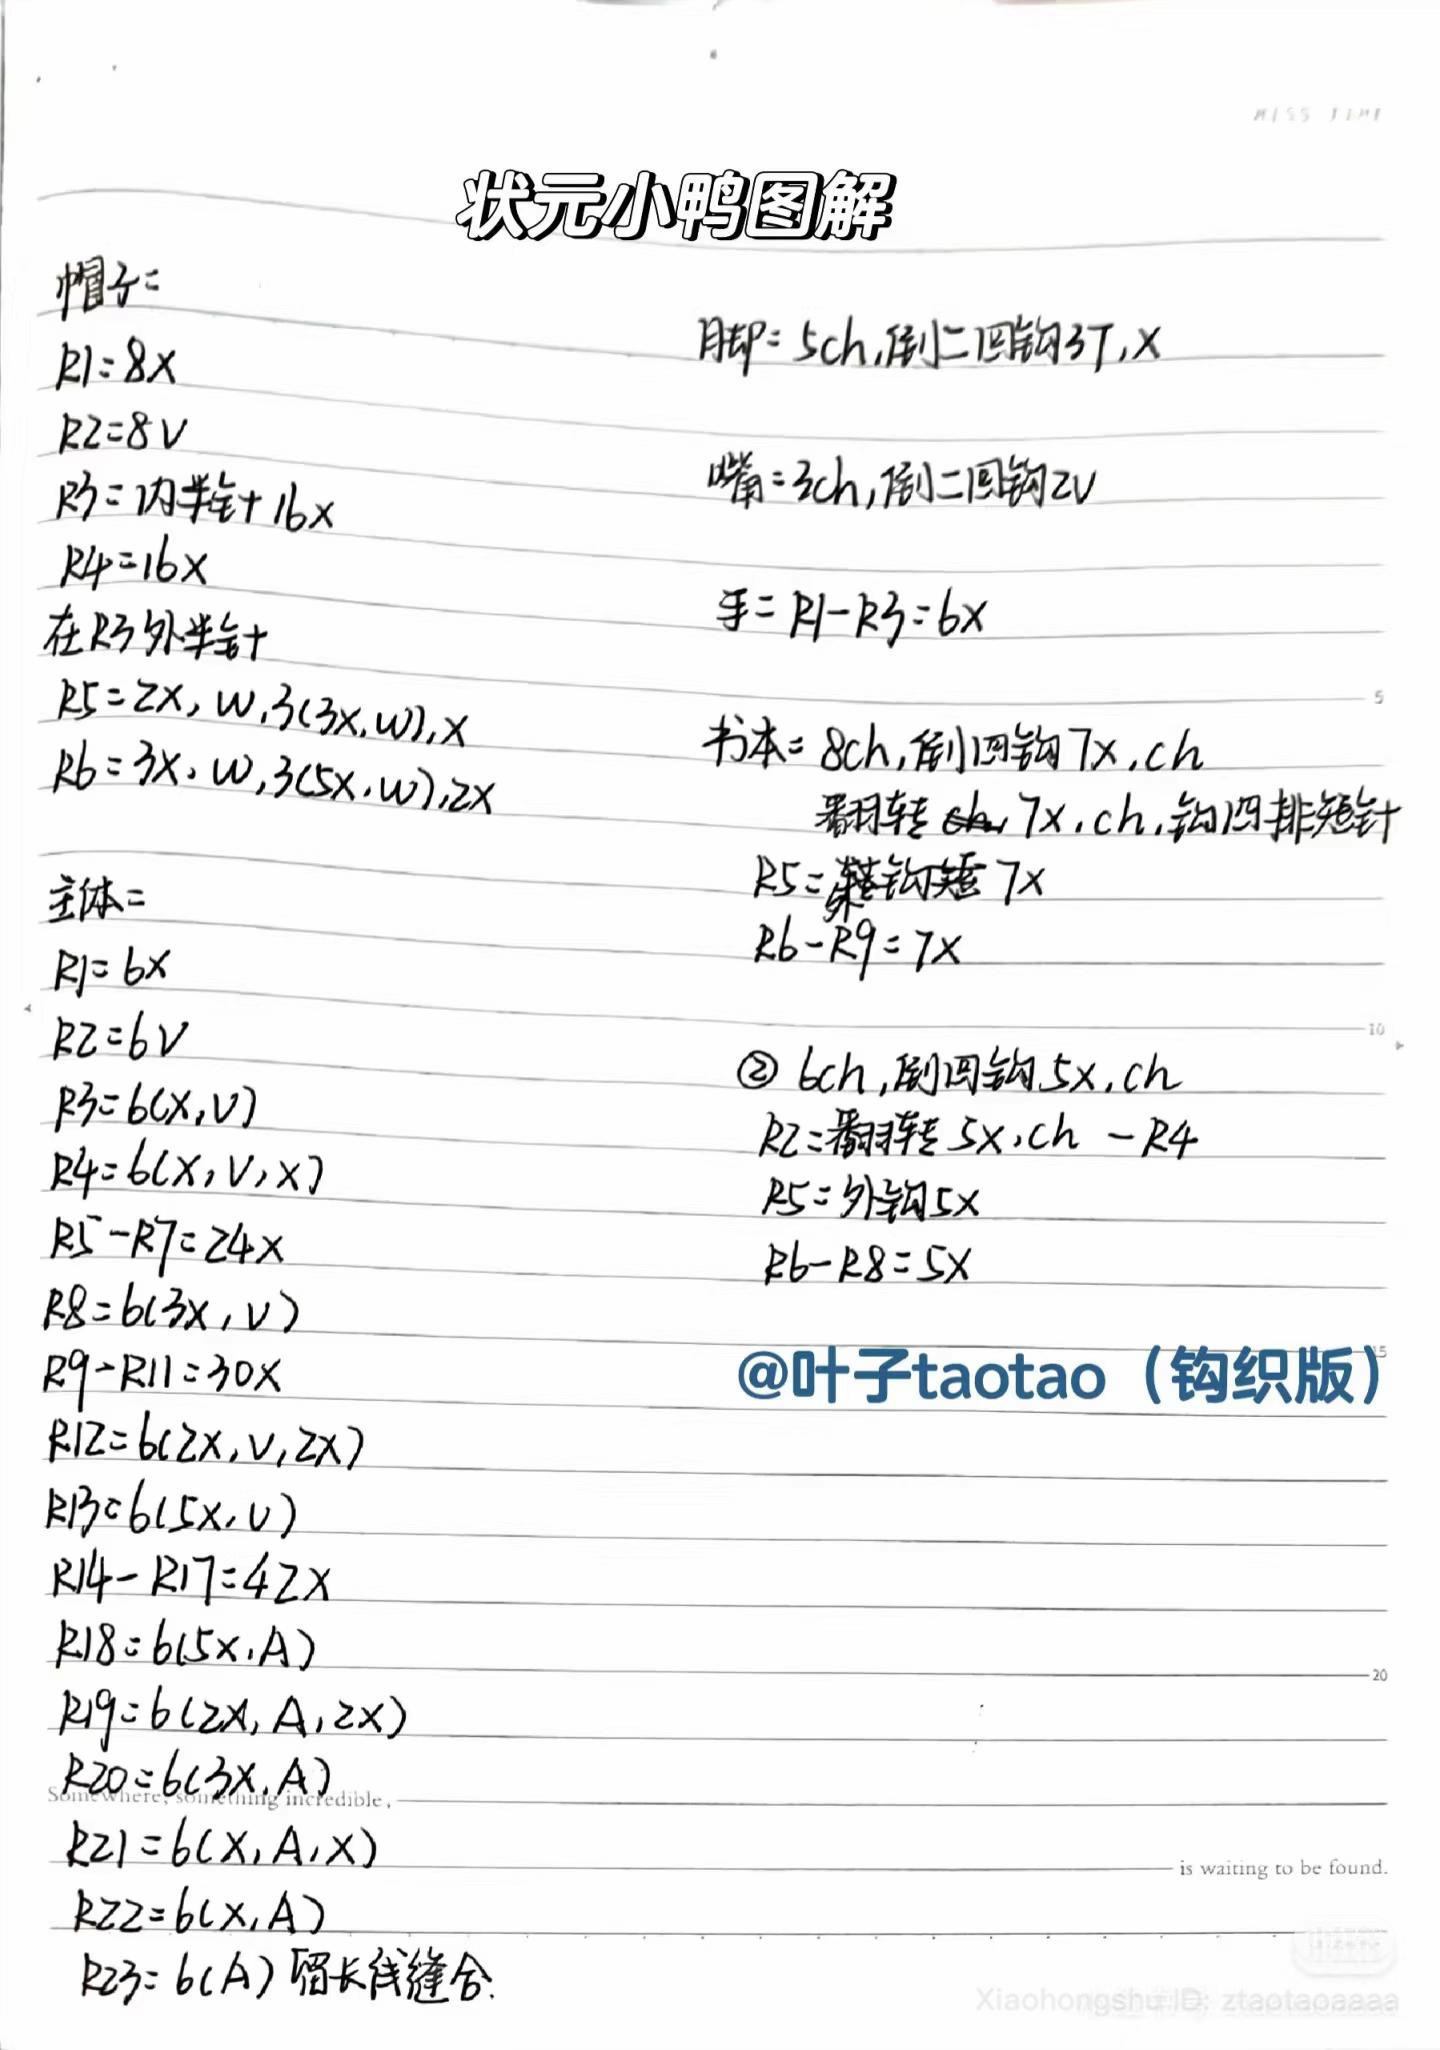 MISS TIME
状元小鸭图解
帽子=
R1=8X
R2=8V
R3=内半针16X
R4=16X
在R3外半针
R5=2X, W,3(3X,W),X
R6=3X,W,3(5X,W),2X
主体=
R1=6X
R2=6V
R3=6(X,V)
R4=6(X,V,X)
R5-R7=24X
R8=6(3X,V)
R9-R11=30X
R12=6(2X,V,2X)
R13=6(5X,V)
R14-R17=42X
R18=6(5X,A)
R19=6(2X,A,2X)
R20=6(3X,A)
R21=6(X,A,X)
R22=6(X,A)
R23=6(A)留长线缝合.
脚=5ch,倒二回钩3T,X
嘴=3ch,倒二回钩2V
手=R1-R3=6X
5
书本=8ch,倒回钩7X,ch
翻转 7X,ch,钩四排短针
R5=外钩短7X
R6-R9=7X
10
② 6ch,倒回钩5X,ch
R2=翻转5X,ch -R4
R5=外钩5X
R6-R8=5X
15
@叶子taotao（钩织版）
20
Somewhere, something incredible,
is waiting to be found.
小红书
Xiaohongshu ID: ztaotaoaaaa